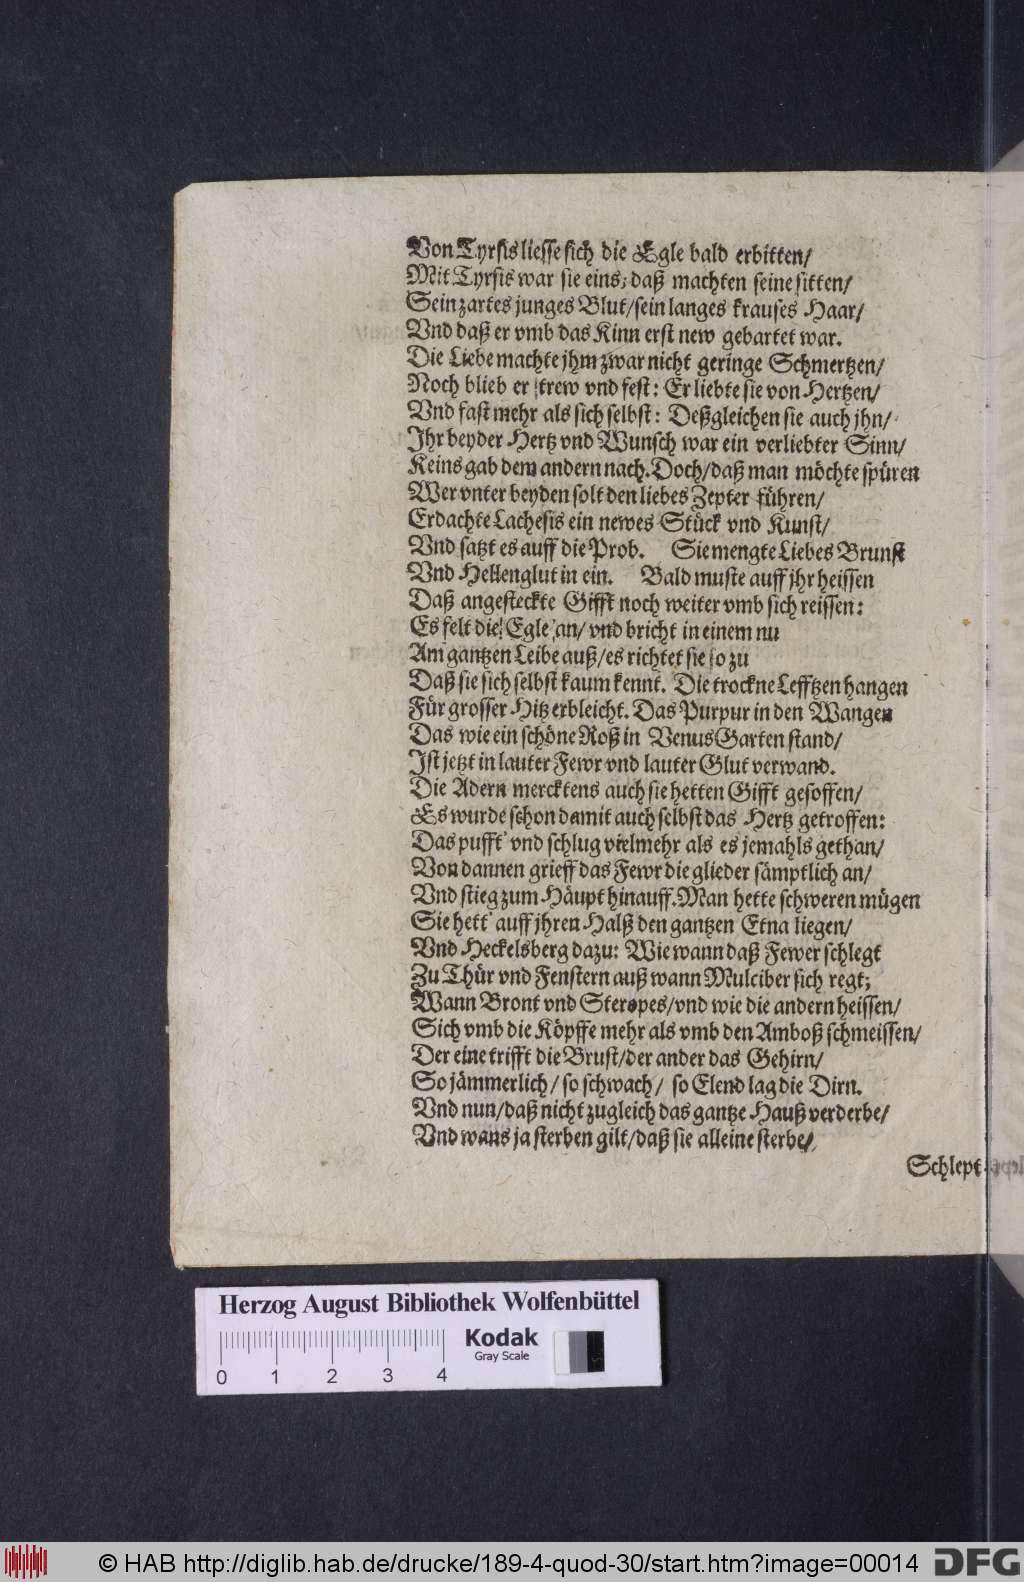 Von Tyrsis liesse sich die Egle bald erbitten/
Mit Tyrsis war sie eins; daß machten seine sitten/
Sein zartes junges Blut/sein langes krauses Haar/
Vnd daß er vmb das Kinn erst new gebartet war.
Die Liebe machte jhm zwar nicht geringe Schmertzen/
Noch blieb er trew vnd fest: Er liebte sie von Hertzen/
Vnd fast mehr als sich selbst: Deßgleichen sie auch jhn/
Ihr beyder Hertz vnd Wunsch war ein verliebter Sinn/
Keins gab dem andern nach. Doch/daß man möchte spüren
Wer vnter beyden solt den liebes Zepter führen/
Erdachte Lachesis ein newes Stück vnd Kunst/
Vnd satzt es auff die Prob. Sie mengte Liebes Brunst
Vnd Hellenglut in ein. Bald muste auff jhr heissen
Daß angesteckte Gifft noch weiter vmb sich reissen:
Es felt die Egle an/ vnd bricht in einem nu
Am gantzen Leibe auß/es richtet sie so zu
Daß sie sich selbst kaum kennt. Die trockne Lefftzen hangen
Für grosser Hitz erbleicht. Das Purpur in den Wangen
Das wie ein schöne Roß in Venus Garten stand/
Ist jetzt in lauter Fewr vnd lauter Glut verwand.
Die Adern mercktens auch sie hetten Gifft gesoffen/
Es wurde schon damit auch selbst das Hertz getroffen:
Das pufft' vnd schlug vielmehr als es jemahls gethan/
Von dannen grieff das Fewr die glieder sämptlich an/
Vnd stieg zum Häupt hinauff. Man hette schweren mügen
Sie hett' auff jhren Halß den gantzen Etna liegen/
Vnd Heckelsberg dazu: Wie wann daß Fewer schlegt
Zu Thür vnd Fenstern auß wann Mulciber sich regt;
Wann Bront vnd Steropes/vnd wie die andern heissen/
Sich vmb die Köpffe mehr als vmb den Amboß schmeissen/
Der eine trifft die Brust/der ander das Gehirn/
So jämmerlich/ so schwach/ so Elend lag die Dirn.
Vnd nun/daß nicht zugleich das gantze Hauß verderbe/
Vnd wans ja sterben gilt/daß sie alleine sterbe/
Schlept
Herzog August Bibliothek Wolfenbüttel
Kodak
Gray Scale
0 1 2 3 4
© HAB http://diglib.hab.de/drucke/189-4-quod-30/start.htm?image=00014
DFG